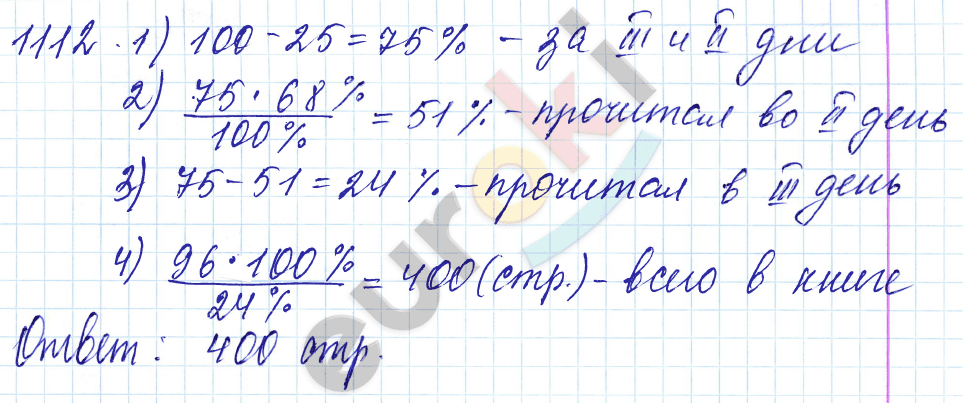 1112. 1) 100 - 25 = 75% - за III и II дни
2) 75 · 68% / 100% = 51% - прочитал во II день
3) 75 - 51 = 24% - прочитал в III день
4) 96 · 100% / 24% = 400 (стр.) - всего в книге
Ответ: 400 стр.
euroki